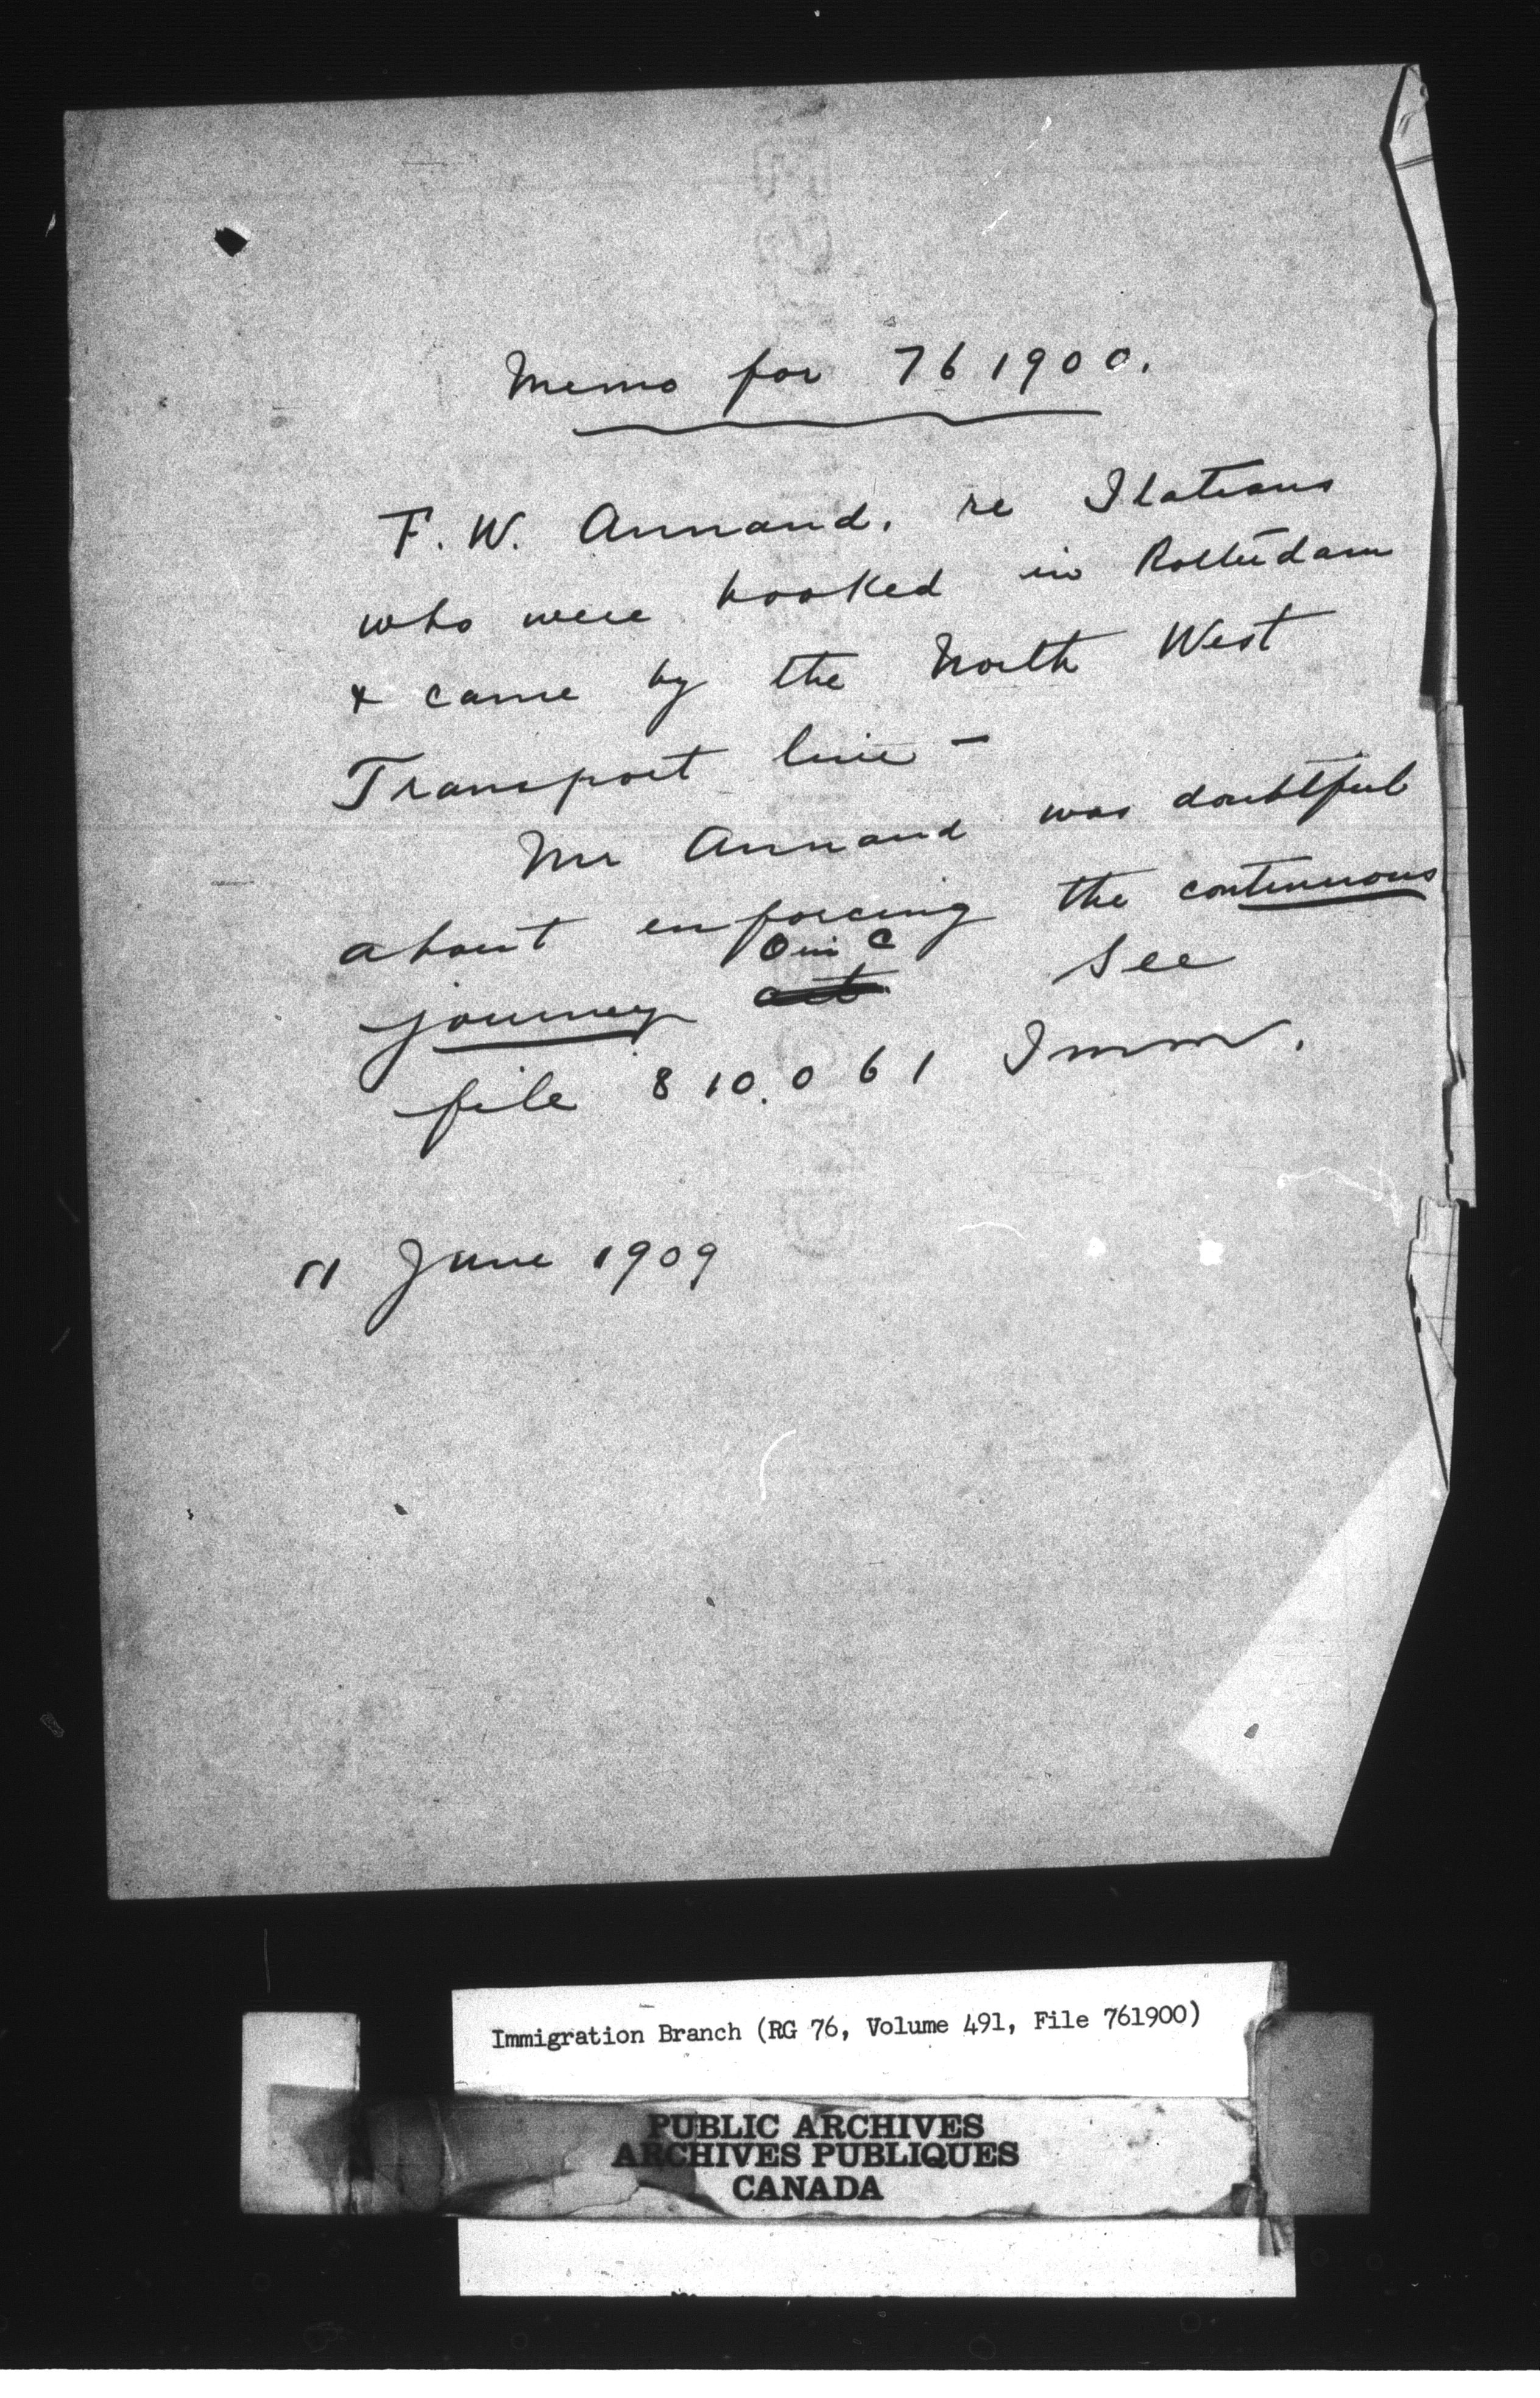 Memo for 761900.
F. W. Annand. re Ilatians
who were booked in Rotterdam
& came by the North West
Transport line —
Mr Annand was doubtful
about enforcing the continuous
O in C
journey act See
file 810.061 Imm.
11 June 1909
Immigration Branch (RG 76, Volume 491, File 761900)
PUBLIC ARCHIVES
ARCHIVES PUBLIQUES
CANADA